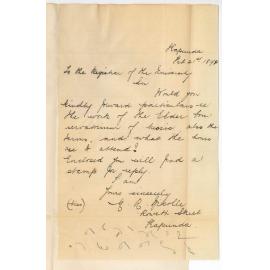 Kapunda
Feb 2nd 1898
To the Register of the University
Sir
Would you
kindly forward particulars re
the work of the Elder Con
servatorium of Music also the
terms, and what the hours
are to attend?
Enclosed you will find a
stamp for reply.
I am
Yours sincerely
(Miss) E. R.
Street
Kapunda.